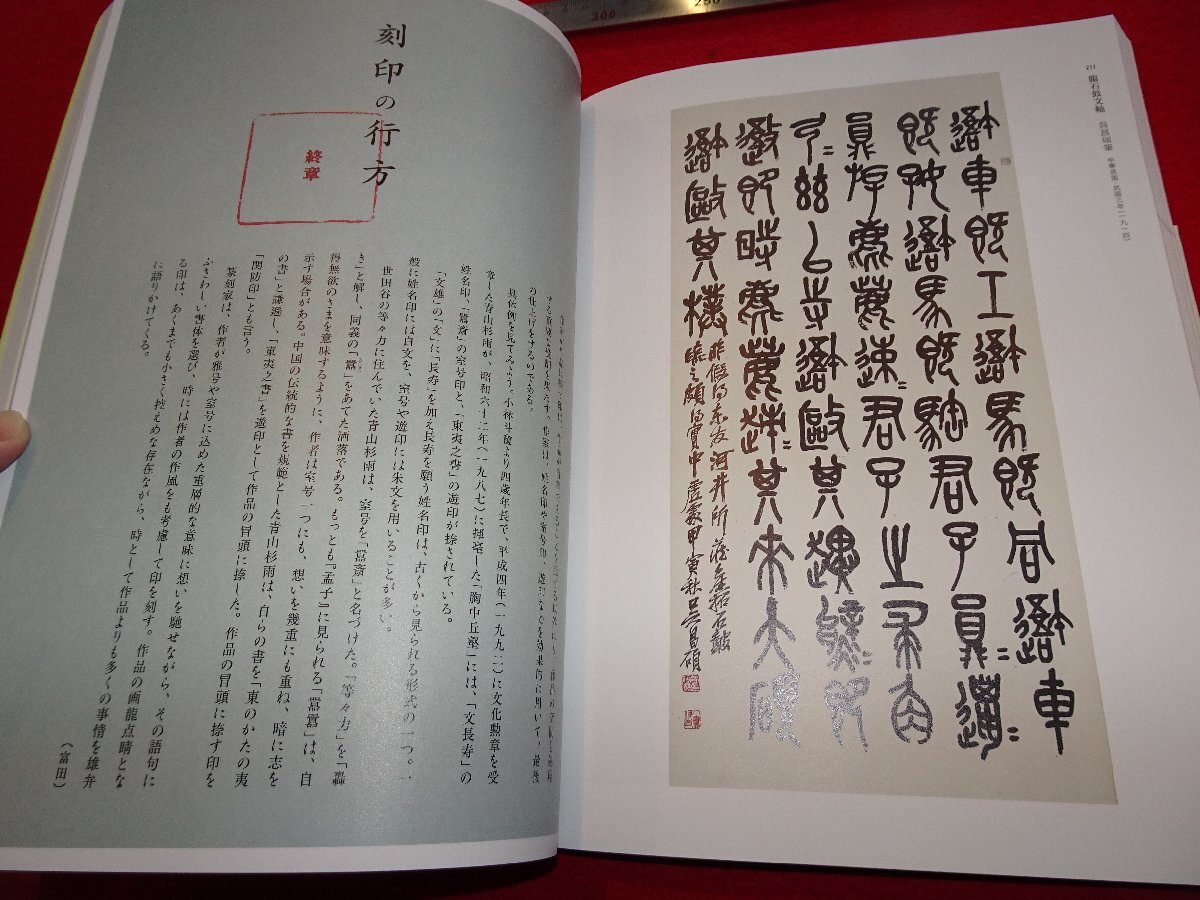 217 臨石鼓文軸 呉昌碩筆 中華民国・民国三年(一九一四)
避車既工避馬既同避車
既好避馬既騊君子員邋〻
員斿麀鹿速〻君子之求
弓〻茲以寺避敺其特其來
避敺其樸
昨假得東友河井所藏舊拓石鼓
臨之頗得實中虛處甲寅秋吳昌碩
刻印の行方
終章
の仕上げをするのである。
具体例を見てみよう。小林斗盦より四歳年長で、平成四年(一九九二)に文化勲章を受
章した青山杉雨が、昭和六十二年(一九八七)に揮毫した「胸中丘壑」には、「文長寿」の
姓名印、「囂斎」の室号印と、「東夷之書」の遊印が捺されている。
「文雄」の「文」に「長寿」を加え長寿を願う姓名印は、古くから見られる形式の一つ。一
般に姓名印には白文を、室号や遊印には朱文を用いることが多い。
世田谷の等々力に住んでいた青山杉雨は、室号を「囂斎」と名づけた。「等々力」を「轟
き」と解し、同義の「囂」をあてた洒落である。もっとも『孟子』に見られる「囂囂」は、自
得無欲のさまを意味するように、作者は室号一つにも、想いを幾重にも重ね、暗に志を
示す場合がある。中国の伝統的な書を規範とした青山杉雨は、自らの書を「東のかたの夷
の書」と謙遜し、「東夷之書」を遊印として作品の冒頭に捺した。作品の冒頭に捺す印を
「関防印」とも言う。
篆刻家は、作者が雅号や室号に込めた重層的な意味に想いを馳せながら、その語句に
ふさわしい書体を選び、時には作者の作風をも考慮して印を刻す。作品の画龍点睛とな
る印は、あくまでも小さく控えめな存在ながら、時として作品よりも多くの事情を雄弁
に語りかけてくる。
(富田)
300